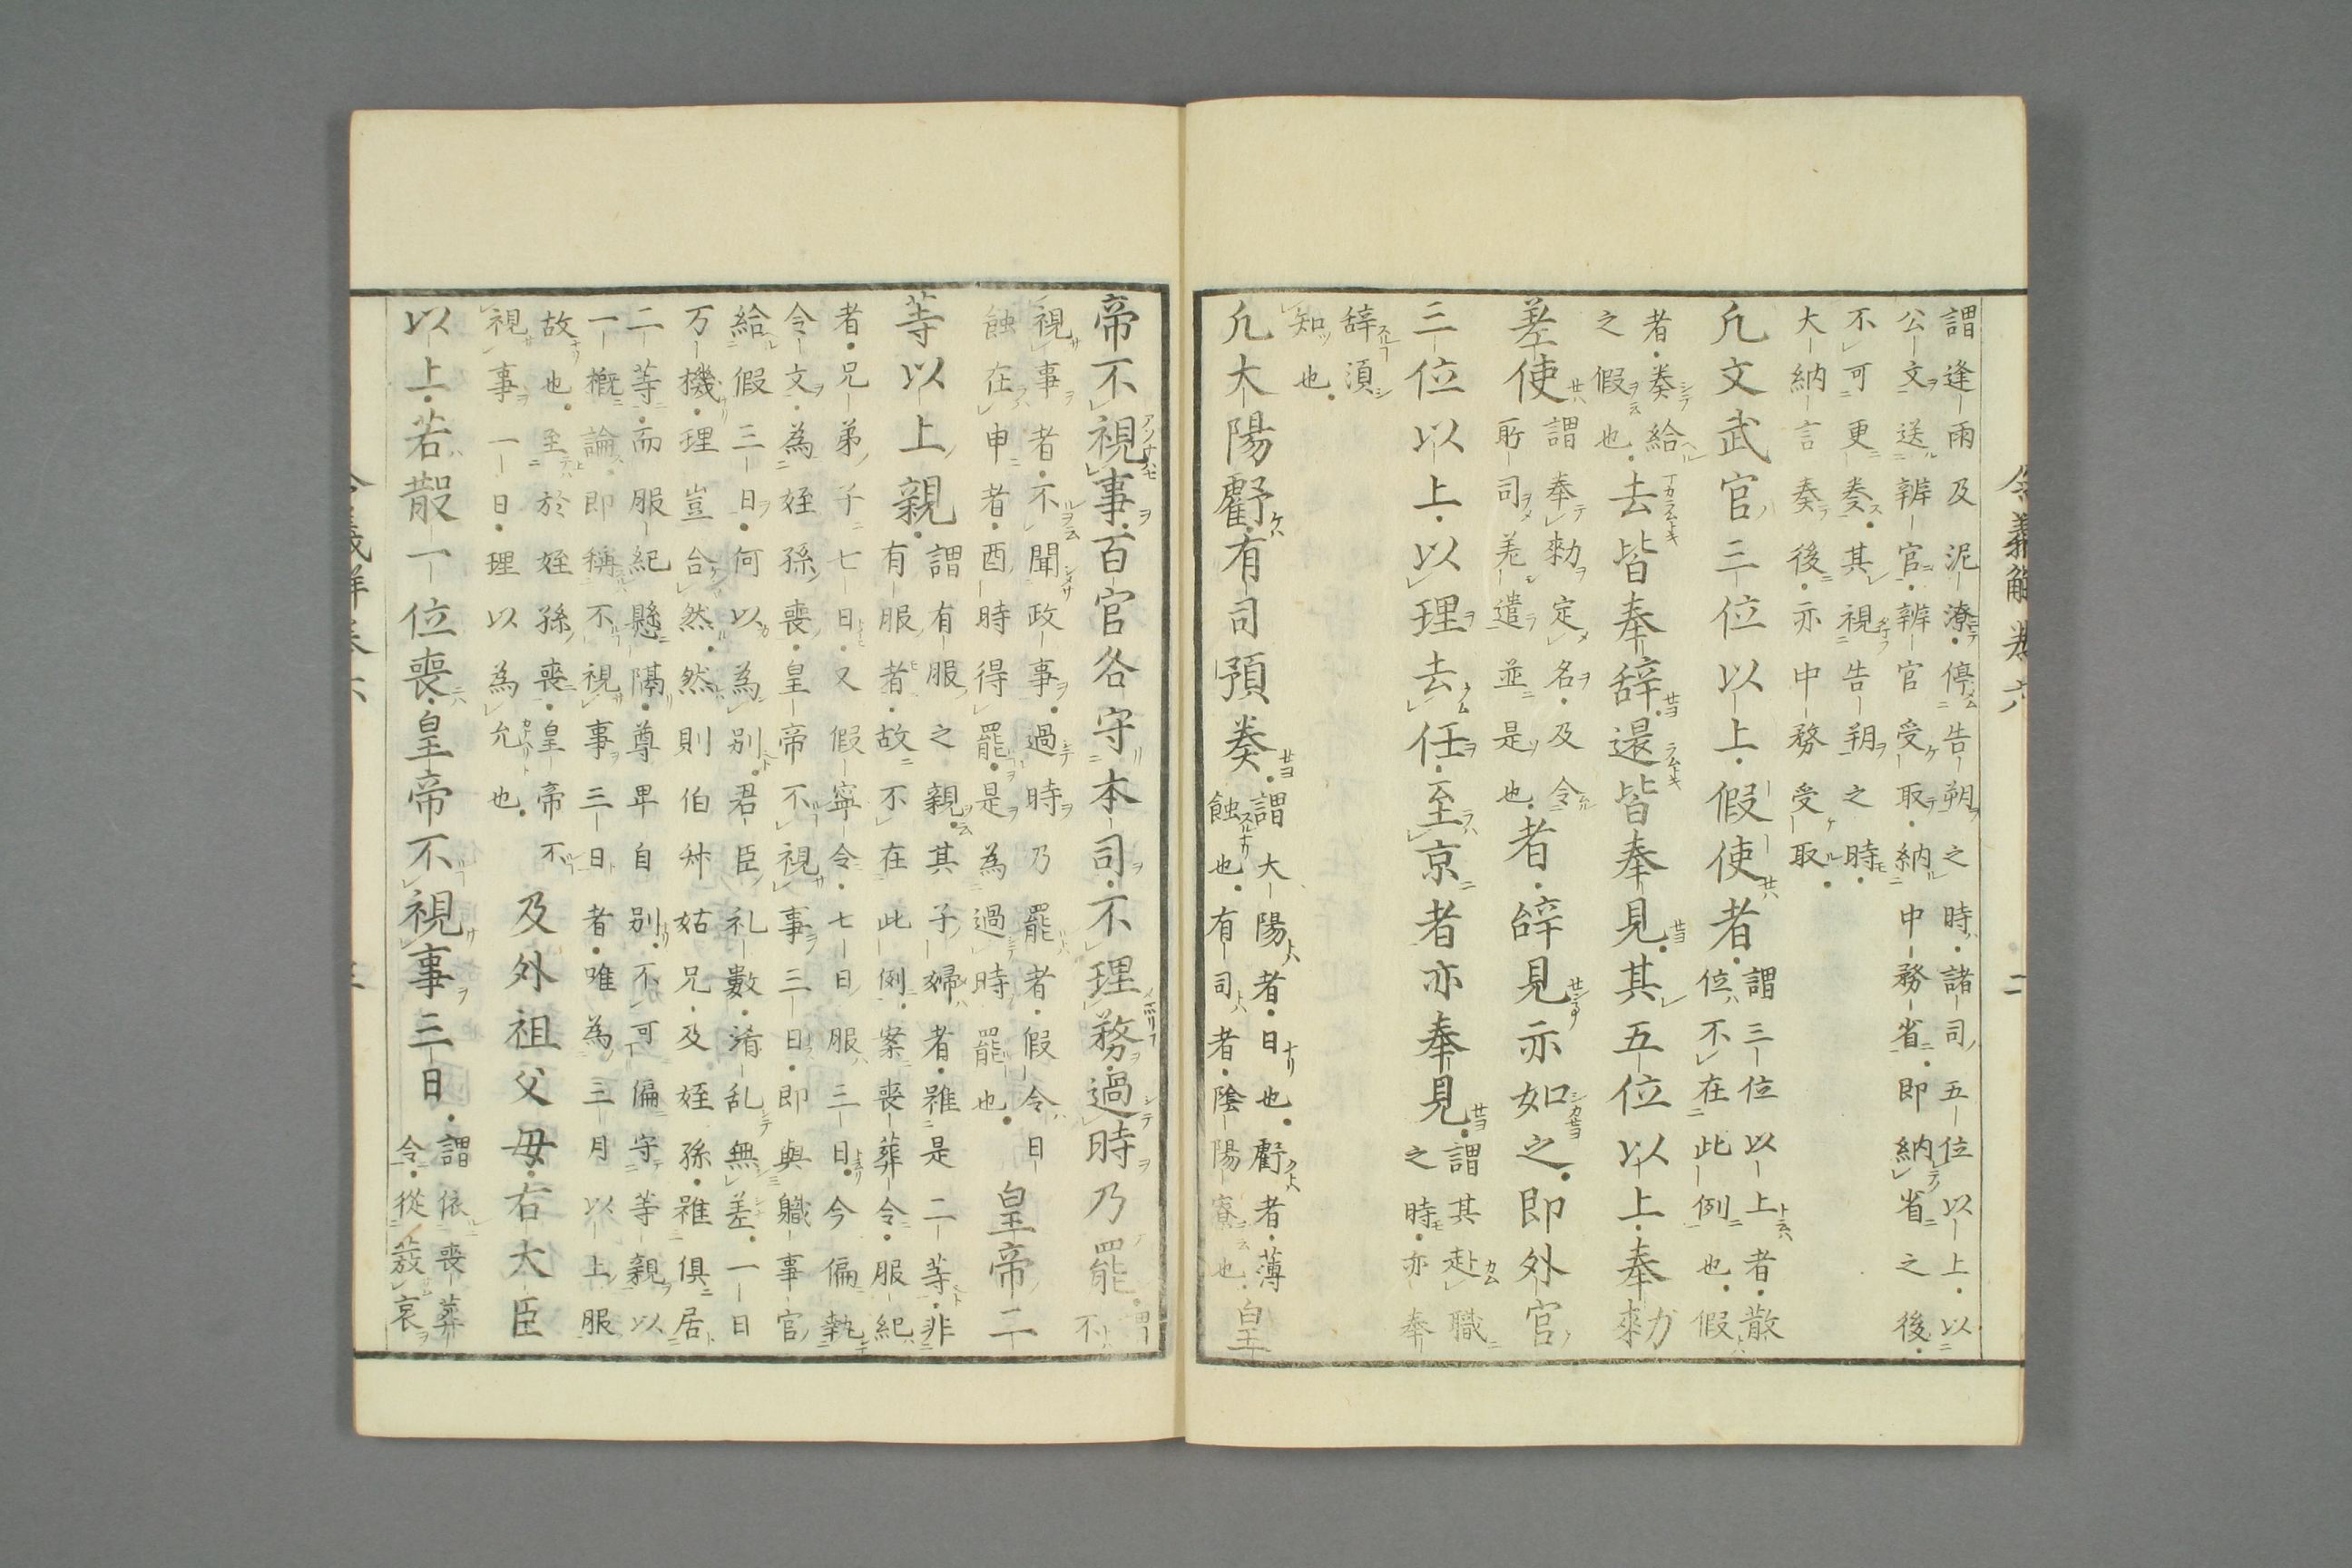 謂逢雨及泥潦停告朔之時諸司五位以上以
公文送辨官辨官受取納中務省即納省之後
不可更奏其視告朔之時
大納言奏後亦中務受取
凡文武官三位以上假使者謂三位以上者散
位不在此例也假
者奏給
之假也去皆奉辞還皆奉見其五位以上奉勅
差使謂奉勅定名及令
所司差遣並是也者辞見亦如之即外官
三位以上以理去任至京者亦奉見謂其赴職
之時亦奉
辞湏
知也
凡大陽虧有司預奏謂大陽者日也虧者薄
蝕也有司者陰陽寮也皇
帝不視事百官各守本司不理務過時乃罷
不
視事者不聞政事過時乃罷者假令日
蝕在申者酉時得罷是為過時罷也皇帝二
等以上親謂有服之親其子婦者雖是二等非
有服者故不在此例案喪葬令服紀
者兄弟子七日又假寧令七日服三日今偏執
令文為姪孫喪皇帝不視事三日即與職事官
給假三日何以為別君臣礼數淆乱無差一日
万機理豈合然然則伯叔姑兄及姪孫雖俱居
二等而服紀懸隔尊卑自別不可偏守等親以
一概論即稱不視事三日者唯為三月以上服
故也至於姪孫喪皇帝不
視事一日理以為允也及外祖父母右大臣
以上若散一位喪皇帝不視事三日謂依喪葬
令從發哀
令義解卷六
二